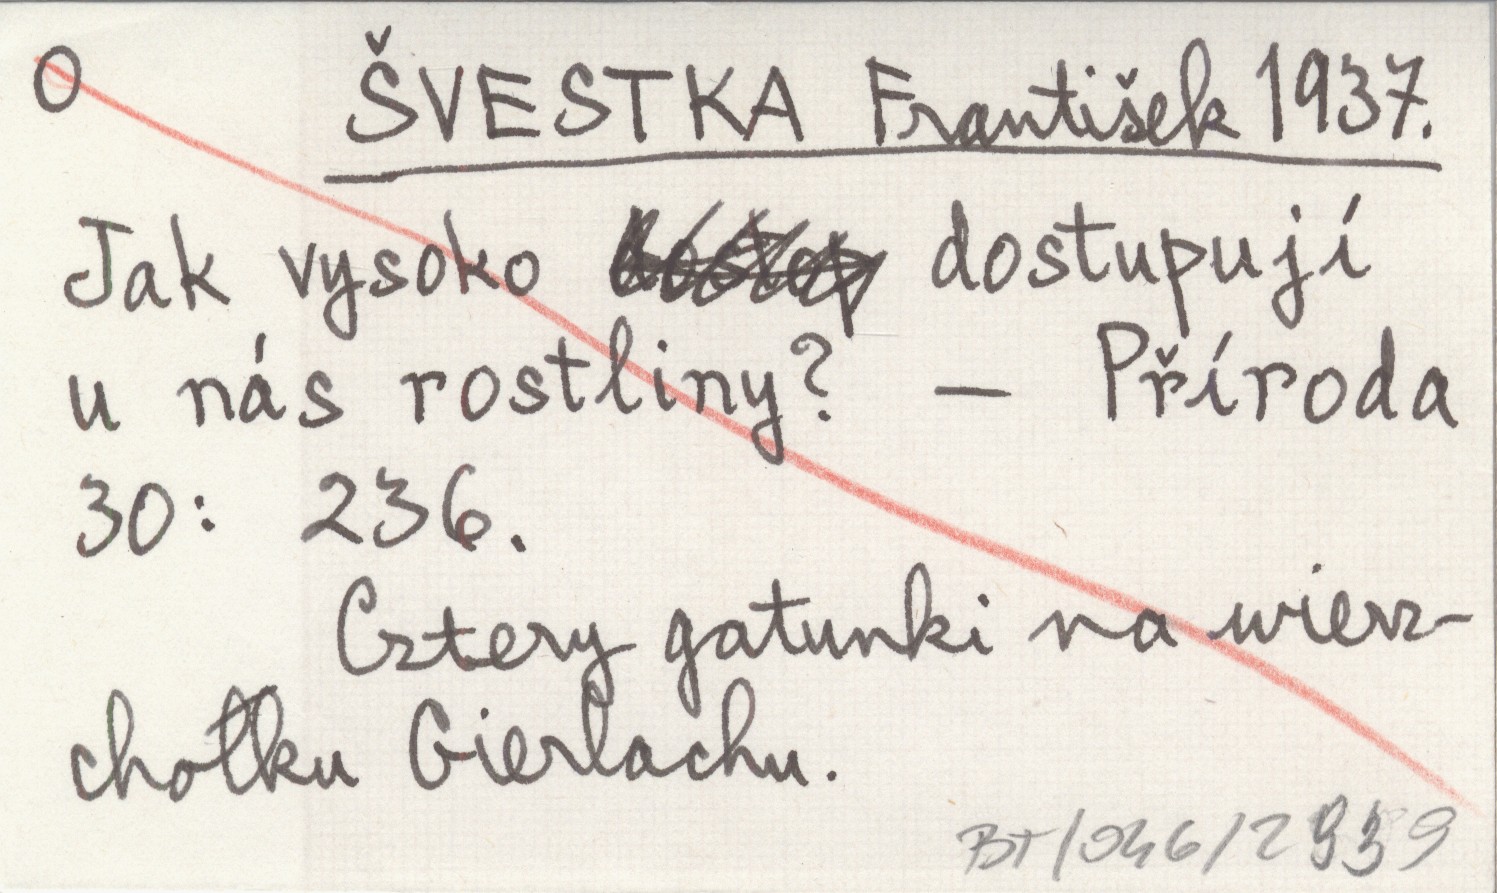 O ŠVESTKA František 1937.
Jak vysoko dostupují
u nás rostliny? — Příroda
30: 236.
Cztery gatunki na wierz-
chołku Gierlachu.
BT/046/2939